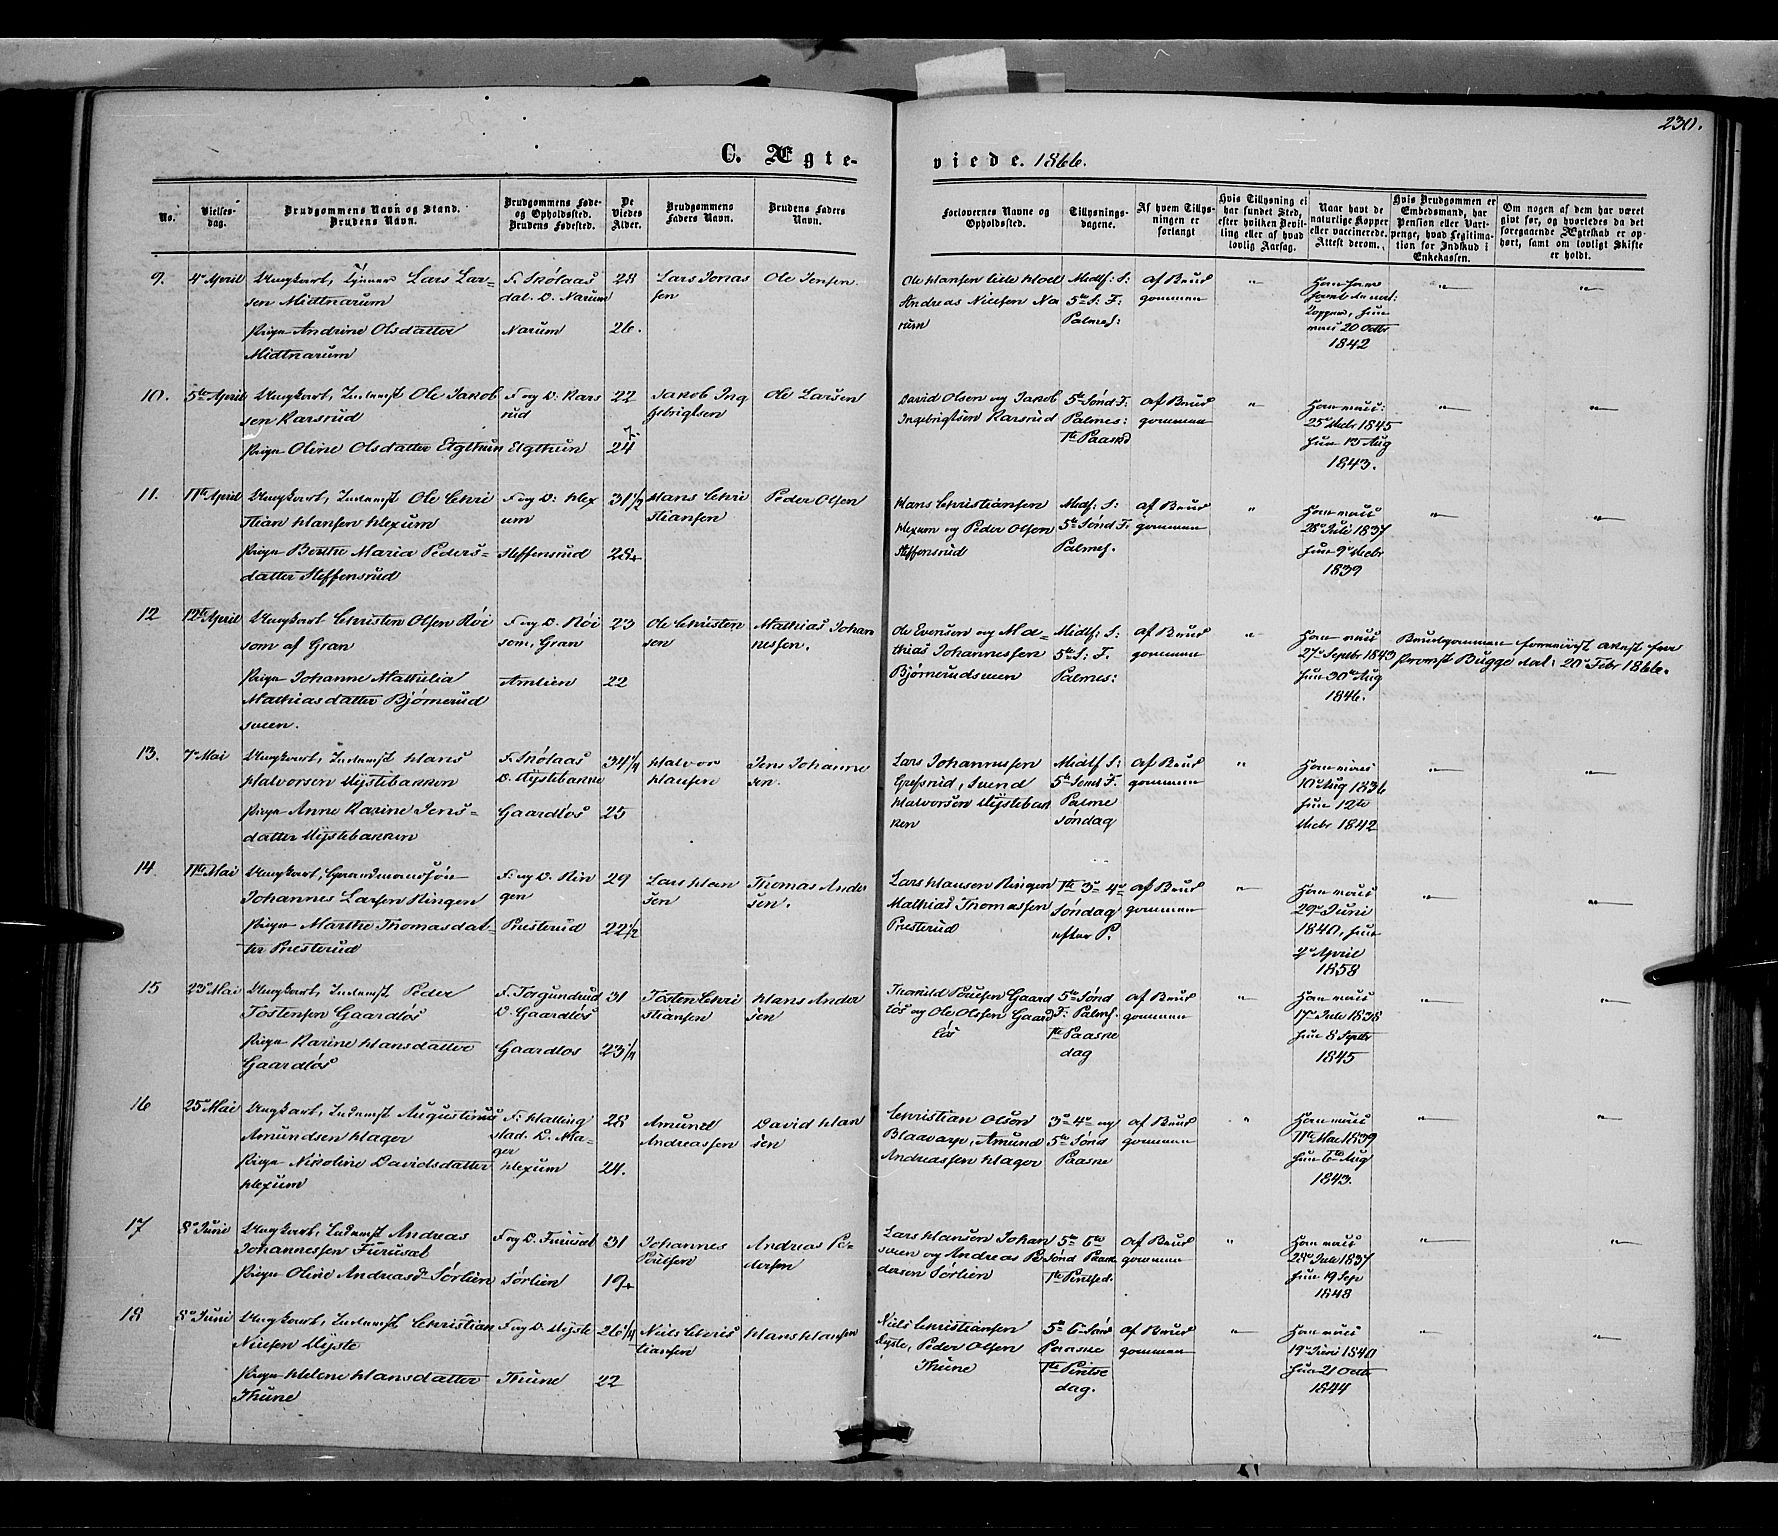 230.
C. Ægte-
viede. 1866.
No.
Vielses-
dag.
Brudgommens Navn og Stand.
Brudens Navn.
Brudgommens Føde-
og Opholdssted.
Brudens Fødested.
De
Viedes
Alder.
Brudgommens
Faders Navn.
Brudens Faders
Navn.
Forlovernes Navne og
Opholdssted.
Tillysnings-
dagene.
Af hvem Tillys-
ningen er
forlangt
Hvis Tillysning ei
har fundet Sted,
efter hvilken Bevil-
ling eller af hvad
lovlig Aarsag.
Naar havt de
naturlige Kopper
eller vaccinerede.
Attest derom.
Hvis Brudgommen er
Embedsmand, har
Pension eller Vart-
penge, hvad Legitima-
tion for Indskud i
Enkekassen.
Om nogen af dem har været
givt før, og hvorledes da det
foregaaende Ægteskab er op-
hørt, samt om lovligt Skifte
er holdt.
9. 4de April Ungkarl, Tjener Lars Lar-
sen Midtnarum
Pige Andrine Olsdatter
Midtnarum
F. Skölaas
dal. O. Narum
Narum
28
26.
Lars Jonas
sen
Ole Jensen
Ole Hansen Lille Hoel
Andreas Nielsen Na
rum
Midf: S:
5te S: F.
Palmes:
af Brud
gommen
"
20 Octbr
1842
"
"
10. 5te April Ungkarl, Inderst Ole Jakob
sen Karsrud
Pige Oline Olsdatter Elgthun
F og O. Kars
rud
Elgthun
22
24
Jakob Ing
gebrigtsen
Ole Larsen
David Olsen og Jakob
Ingebrigtsen Karsrud
5te Sønd F.
Palmes:
1te Paaskd
af Brud
gommen
"
Han vacc:
25 Decbr 1845
hun 15 Aug
1843.
"
"
11. 11te April Ungkarl, Inderst Ole Chri
stian Hansen Hexum
Pige Berthe Maria Peders-
datter Steffensrud
F og O: Hex
um
Steffensrud
31 1/2
28
Hans Chri
stiansen
Peder Olsen
Hans Christiansen
Hexum og Peder Olsen
Steffensrud
Midf: S:
5te Sønd F.
Palmes.
af Brud
gommen
"
Han vacc
28 Juli 1837
hun 9 Decbr
1839
"
"
12 12te April Ungkarl Christen Olsen Röi
som af Gran
Pige Johanne Mathilia
Mathiasdatter Bjørnerud
sveen.
F og O. Röi
som, Gran
Amlien
23
22
Ole Christen
sen
Mathias Johan
nessen.
Ole Evensen og Ma-
thias Johannessen
Bjørnerudsveen
Midf: S:
5te S: F.
Palmes:
af Brud
gommen
"
Han vacc
27 Septbr 1843
hun 30 Aug
1846.
Brudgommen foreviist Attest fra
Provst Bugge dat: 20 Febr 1866.
13. 7de Mai Ungkarl, Inderst Hans
Halvorsen Dystebakken
Pige Anne Karine Jens-
datter Dystebakken
F. Skölaas
O. Dystebakken
Gaardlös
34 1/4
25
Halvor
Hansen
Jens Johanne
sen.
Lars Johannessen
Grefsrud, Svend
Halvorsen Dystebak
ken
Midf S:
5te Sønd F.
Palme
søndag
af Brud
gommen
"
Han vacc
10 Aug 1836
hun 12te
Decbr 1842
"
"
14. 11te Mai Ungkarl, Gaardmandssøn
Johannes Larsen Ringen
Pige Marthe Thomasdat-
ter Presterud
F. og O. Rin
gen
Presterud
29
22 1/2
Lars Han
sen
Thomas Ander
sen.
Lars Hansen Ringen
Mathias Thomassen
Presterud
1te 3de 4de
Søndag
efter P.
af Brud
gommen
"
Han vacc
29 Juni
1840, hun
April
1858
"
"
15 23de Mai Ungkarl, Inderst Peder
Tostensen Gaardlös
Pige Karine Hansdatter
Gaardlös
F. Torgundrud
O. Gaardlös
Gaardlos
31
23 1/4
Tosten Chri
stiansen
Hans Ander
sen
Poulsen Gaard
lös og Ole Olsen Gaard
lös
5te Sønd
F. Palms.
1te Paaske
dag
af Brud
gommen
"
Han vacc
17 Juli 1838
hun 8 Septbr
1845
"
"
16 25de Mai Ungkarl, Inderst Augustinus
Amundsen Hager
Pige Nikoline Davidsdatter
Hexum
F. Halling
stad. O. Ha-
ger
Hexum
28
24.
Amund
Andreassen
David Han
sen
Christian Olson
Blaavarp, Amund
Andreassen Hager
3de 4de og
5te Sønd
Paaske
af Brud
gommen
"
Han vacc
11te Mai 1839
hun 6te Aug
1843.
"
"
17 8de Juni Ungkarl, Inderst Andreas
Johannessen Furusat
Pige Oline Andreasd. Sørlien
F og O. Furusat
Sørlien
31
19
Johannes
Poulsen
Andreas Pe-
dersen
Lars Hansen Johan
sveen og Andreas Pe
dersen Sørlien
5te 6te
Sønd Paask
1te Pintsed.
af Brud
gommen
"
Han vacc
28 Juli 1837
hun 19 Sep
1848
"
"
18 8de Juni Ungkarl, Inderst Christian
Nielsen Dyste
Pige Helene Hansdatter
Thune
F og O. Dyste
Thune
26 1/4
22
Niels Chris
tiansen
Hans Hansen
Niels Christiansen
Dyste, Peder Olsen
Thune
5te 6 Sønd
Paaske
1te Pintse
dag.
af Brud
gommen
"
Han vacc
19 Juni 1840
hun 21 Octbr
1844
"
"